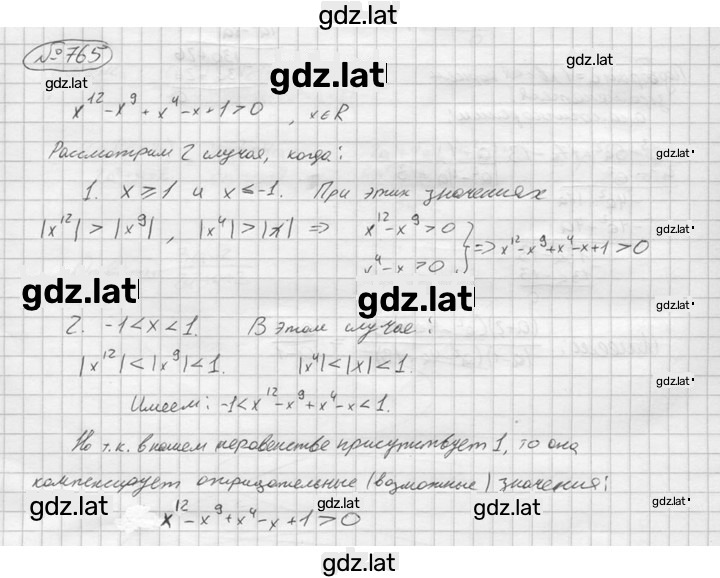 gdz.lat
№765
gdz.lat
gdz.lat
gdz.lat
x¹² - x⁹ + x⁴ - x + 1 > 0 , x ∈ R
Рассмотрим 2 случая, когда:
gdz.lat
1. x ⩾ 1 и x ≤ -1. При этих значениях
|x¹²| > |x⁹| , |x⁴| > |x| ⇒ x¹² - x⁹ > 0
x⁴ - x > 0 } ⇒ x¹² - x⁹ + x⁴ - x + 1 > 0
gdz.lat
gdz.lat
gdz.lat
gdz.lat
2. -1 < x < 1. В этом случае:
|x¹²| < |x⁹| < 1. |x⁴| < |x| < 1.
gdz.lat
Имеем: -1 < x¹² - x⁹ + x⁴ - x < 1.
Но т.к. в нашем неравенстве присутствует 1, то она
компенсирует отрицательные (возможные) значения:
gdz.lat
gdz.lat
gdz.lat
gdz.lat
x¹² - x⁹ + x⁴ - x + 1 > 0
gdz.lat